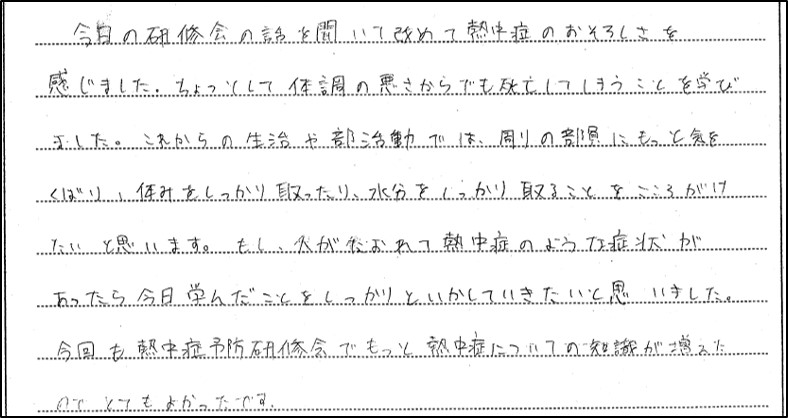 今日の研修会の話を聞いて改めて熱中症のおそろしさを
感じました。ちょっとして体調の悪さからでも死亡してしまうことを学び
ました。これからの生活や部活動では、周りの部員にもっと気を
くばり、休みをしっかり取ったり、水分をしっかり取ることをこころがけ
たいと思います。もし、人がたおれて熱中症のような症状が
あったら今日学んだことをしっかりといかしていきたいと思いました。
今回も熱中症予防研修会でもっと熱中症についての知識が増えた
のでとてもよかったです。